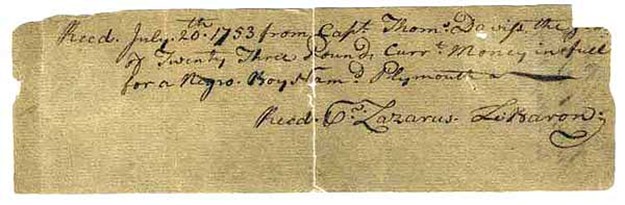 Recd. July. 20th. 1753 from Capt. Thoms. Daviss the
of Twenty Three Pounds Currt. Money in full
for a Negro. Boy Nam'd. Plymouth
Recd. Lazarus. LeBaron